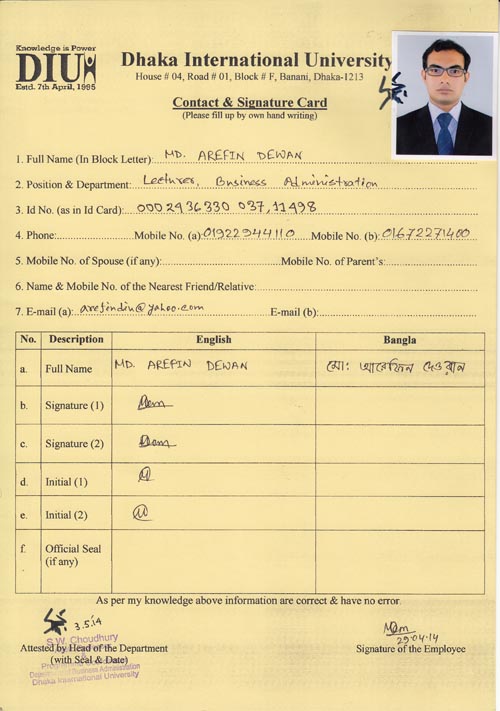 Knowledge is Power
DIU
Estd. 7th April, 1995
Dhaka International University
House # 04, Road # 01, Block # F, Banani, Dhaka-1213
Contact & Signature Card
(Please fill up by own hand writing)
1. Full Name (In Block Letter): MD. AREFIN DEWAN
2. Position & Department: Lecturer, Business Administration
3. Id No. (as in Id Card): 0002936330 037,11498
4. Phone: Mobile No. (a): 01922944110 Mobile No. (b): 01672271400
5. Mobile No. of Spouse (if any): Mobile No. of Parent's:
6. Name & Mobile No. of the Nearest Friend/Relative:
7. E-mail (a): arefindiu@yahoo.com E-mail (b):
No. Description English Bangla
a. Full Name MD. AREFIN DEWAN মো: আরেফিন দেওয়ান
b. Signature (1)
c. Signature (2)
d. Initial (1)
e. Initial (2)
f. Official Seal
(if any)
As per my knowledge above information are correct & have no error.
3.5.14
29.04.14
S.W. Choudhury
Attested by Head of the Department
Signature of the Employee
(with Seal & Date)
Department of Business Administration
Dhaka International University